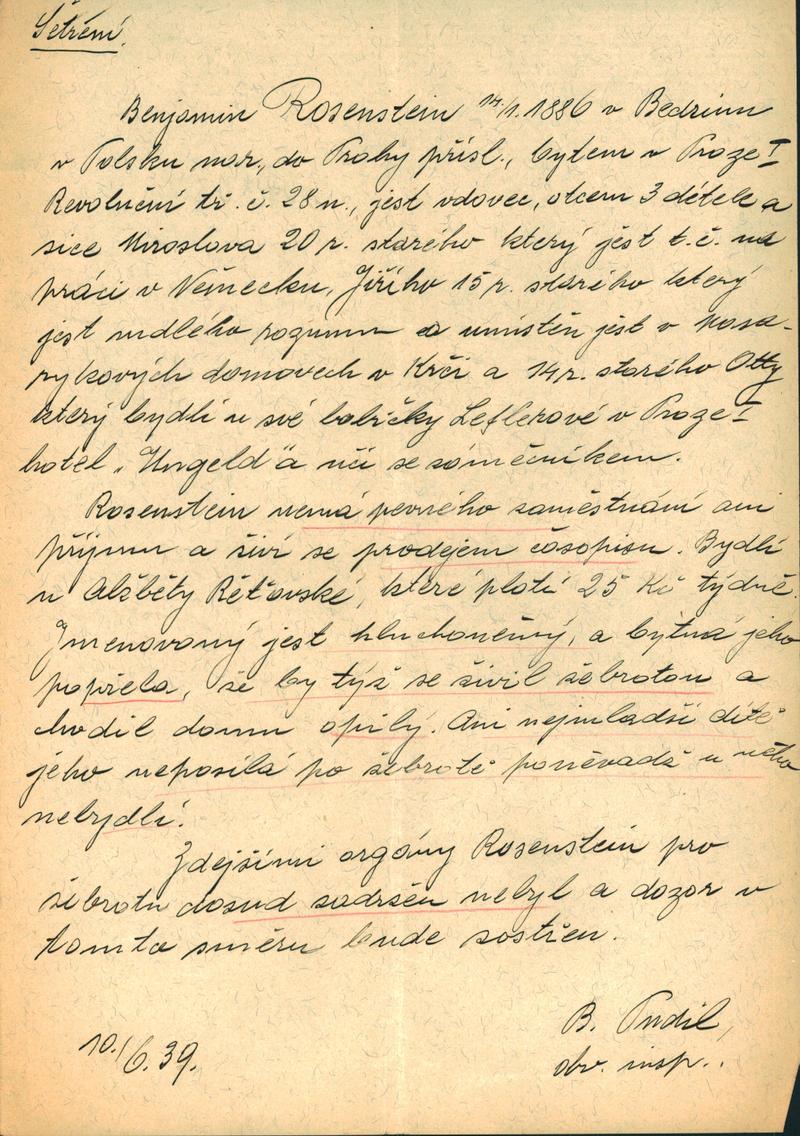 Šetření.
Benjamin Rosenstein 14/1. 1886 v Bedzinu
v Polsku nar., do Prahy přísl., bytem v Praze I
Revoluční tř. č. 28 n., jest vdovec, otcem 3 dětek a
sice Miroslava 20 r. starého který jest t.č. na
práci v Německu, Jiřího 15 r. starého který
jest mdlého rozumu a umístěn jest v Masa-
rykových domovech v Krči a 14 r. starého Otty
který bydlí u své babičky Leflerové v Praze I
hotel „Ungeld" a učí se zámečníkem.
Rosenstein nemá pevného zaměstnání ani
příjmu a živí se prodejem časopisu. Bydlí
u Alžběty Řeťovské, které platí 25 Kč týdně.
Jmenovaný jest hluchoněmý, a bytná jeho
popřela, že by týž se živil žebrotou a
chodil domu opilý. Ani nejmladší dítě
jeho neposílá po žebrotě poněvadž u něho
nebydlí.
Zdejšími orgány Rosenstein pro
žebrotu dosud zadržen nebyl a dozor v
tomto směru bude zostřen.
B. Pudil,
obv. insp..
10./6. 39.